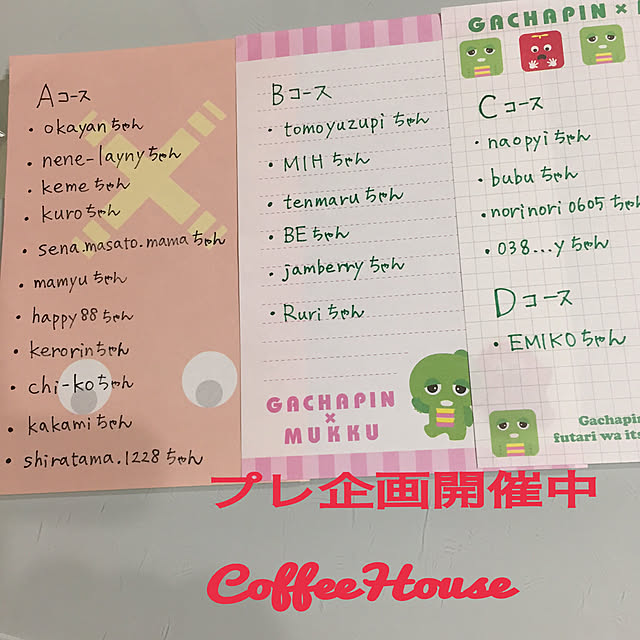 Aコース
・okayanちゃん
・nene-laynyちゃん
・kemeちゃん
・kuroちゃん
・sena.masato.mamaちゃん
・mamyuちゃん
・happy88ちゃん
・kerorinちゃん
・chi-koちゃん
・kakamiちゃん
・shiratama.1228ちゃん
Bコース
・tomoyuzupiちゃん
・MIHちゃん
・tenmaruちゃん
・BEちゃん
・jamberryちゃん
・Ruriちゃん
GACHAPIN
×
MUKKU
GACHAPIN ×
Cコース
・naopyiちゃん
・bubuちゃん
・norinori0605ちゃん
・038...yちゃん
Dコース
・EMIKOちゃん
Gachapin
futari wa its
プレ企画開催中
CoffeeHouse